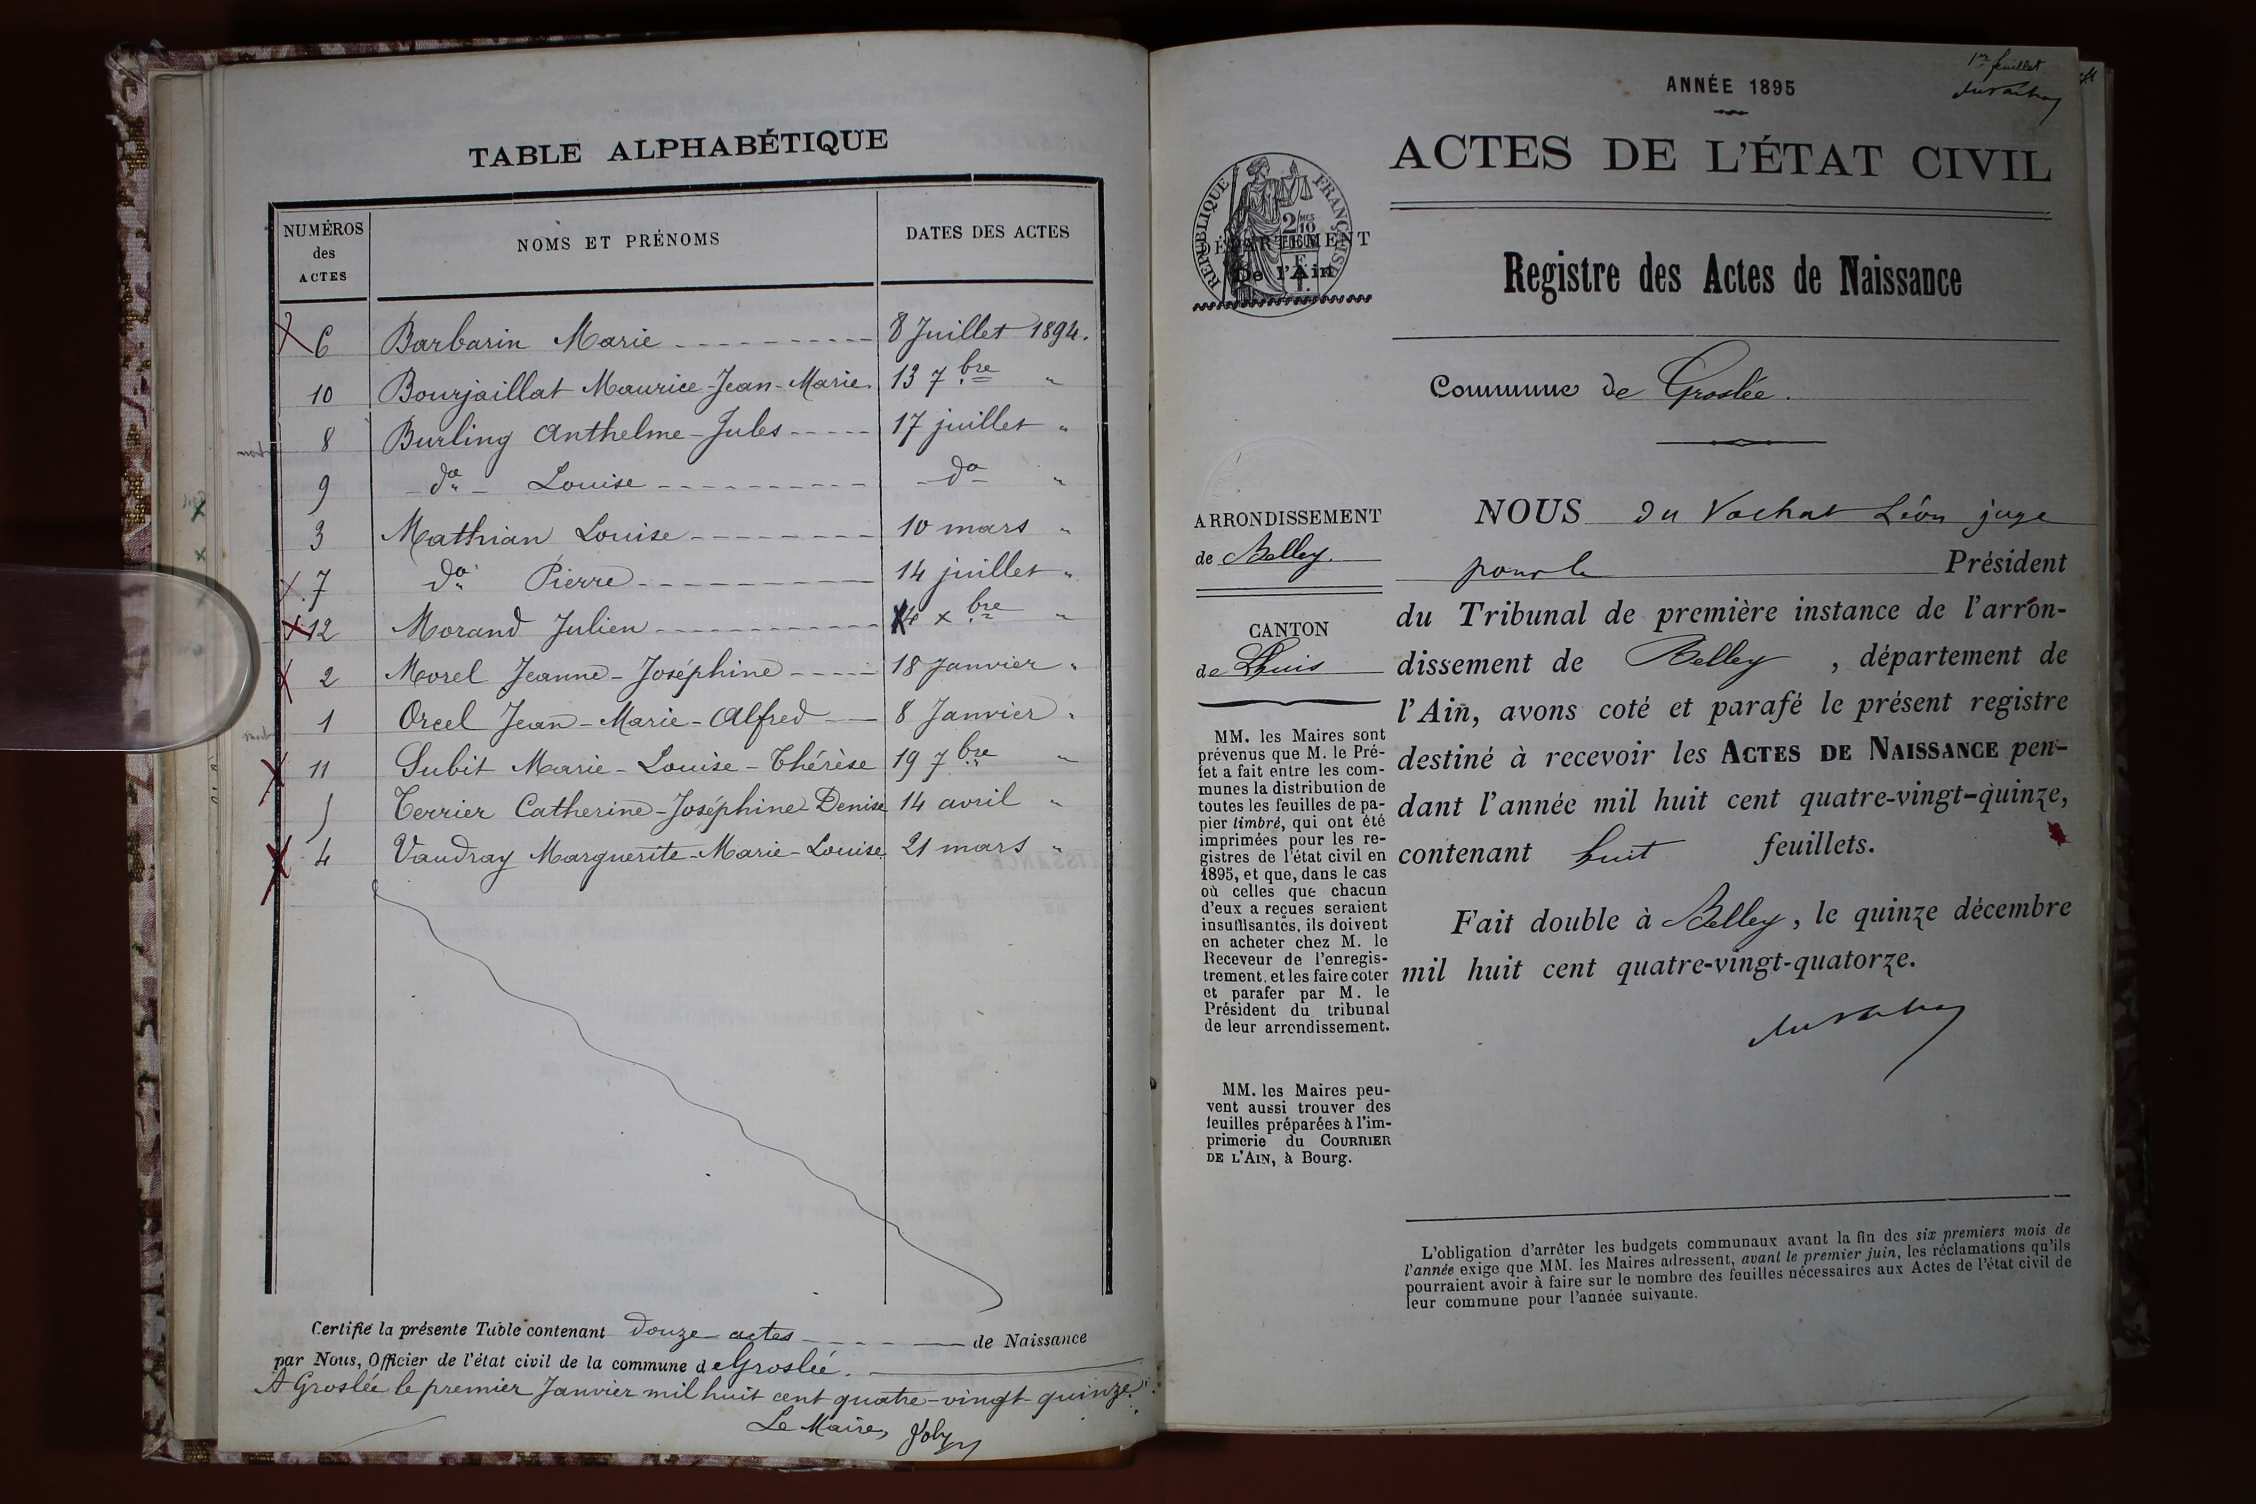 TABLE ALPHABÉTIQUE
NUMÉROS des ACTES NOMS ET PRÉNOMS DATES DES ACTES
6 Barbarin Marie 8 Juillet 1894.
10 Bourjaillat Maurice-Jean-Marie 13 7bre "
8 Burling Anthelme-Jules 17 juillet "
9 do Louise do "
3 Mathian Louise 10 mars "
7 do Pierre 14 juillet "
12 Morand Julien 4 xbre "
2 Morel Jeanne-Joséphine 18 Janvier "
1 Orcel Jean-Marie-Alfred 8 Janvier "
11 Subit Marie-Louise-Thérèse 19 7bre "
5 Terrier Catherine-Joséphine Denise 14 avril "
4 Vaudray Marguerite-Marie-Louise 21 mars "
Certifié la présente Table contenant douze actes de Naissance
par Nous, Officier de l'état civil de la commune de Groslée.
A Groslée le premier Janvier mil huit cent quatre-vingt quinze.
Le Maire, Joly
1er feuillet
ANNÉE 1895
ACTES DE L'ÉTAT CIVIL
RÉPUBLIQUE FRANÇAISE
DÉPARTEMENT
De l'Ain
Registre des Actes de Naissance
Commune de Groslée.
ARRONDISSEMENT
de Belley.
CANTON
de Lhuis
MM. les Maires sont
prévenus que M. le Pré-
fet a fait entre les com-
munes la distribution de
toutes les feuilles de pa-
pier timbré, qui ont été
imprimées pour les re-
gistres de l'état civil en
1895, et que, dans le cas
où celles que chacun
d'eux a reçues seraient
insuffisantes, ils doivent
en acheter chez M. le
Receveur de l'enregis-
trement, et les faire coter
et parafer par M. le
Président du tribunal
de leur arrondissement.
MM. les Maires peu-
vent aussi trouver des
feuilles préparées à l'im-
primerie du COURRIER
DE L'AIN, à Bourg.
NOUS du Vachat Léon juge
pour le Président
du Tribunal de première instance de l'arron-
dissement de Belley, département de
l'Ain, avons coté et parafé le présent registre
destiné à recevoir les ACTES DE NAISSANCE pen-
dant l'année mil huit cent quatre-vingt-quinze,
contenant huit feuillets.
Fait double à Belley, le quinze décembre
mil huit cent quatre-vingt-quatorze.
L'obligation d'arrêter les budgets communaux avant la fin des six premiers mois de
l'année exige que MM. les Maires adressent, avant le premier juin, les réclamations qu'ils
pourraient avoir à faire sur le nombre des feuilles nécessaires aux Actes de l'état civil de
leur commune pour l'année suivante.